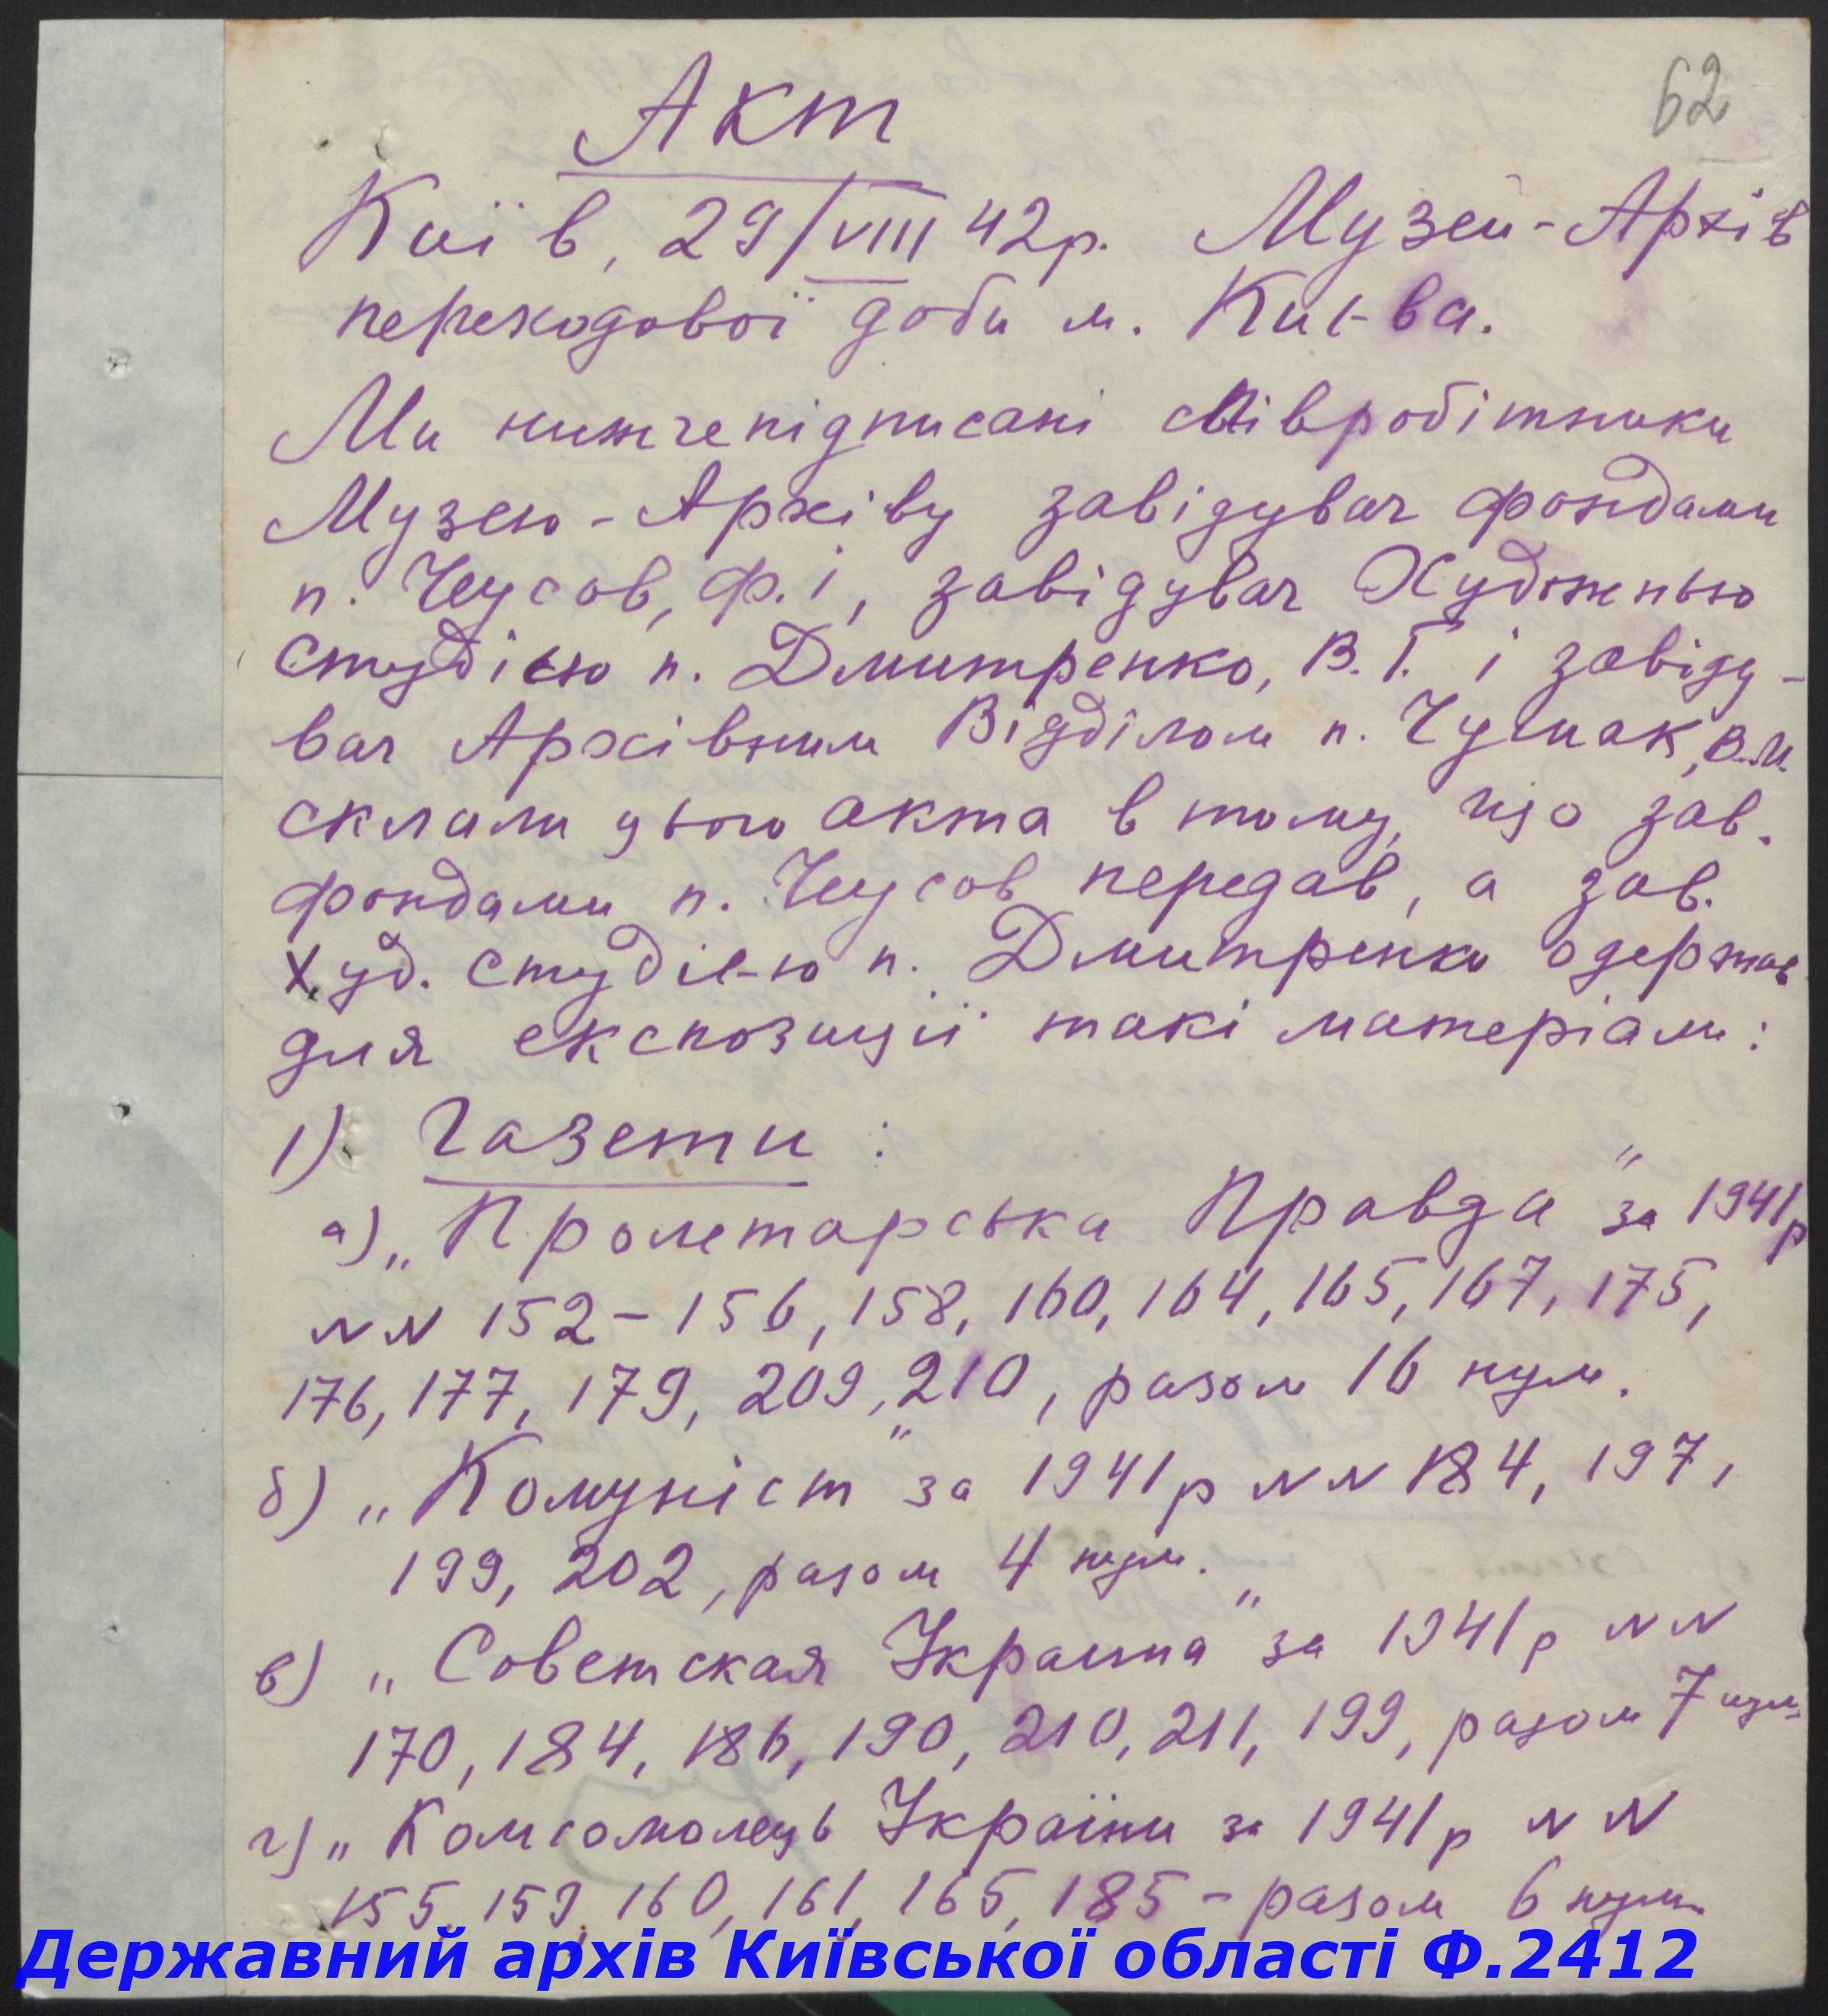 62
Акт
Київ, 29/VIII 42р. Музей-Архів
переходової доби м. Києва.
Ми нижчепідписані співробітники
Музею-Архіву завідувач фондами
п. Чеусов, Ф.І, завідувач Художньою
студією п. Дмитренко, В.Г. і завіду-
вач Архівним Відділом п. Чумак, В.М.
склали цього акта в тому, що зав.
фондами п. Чеусов передав, а зав.
худ. студією п. Дмитренко одержав
для експозиції такі матеріали:
1) Газети:
а) „Пролетарська Правда" за 1941р
NN 152-156, 158, 160, 164, 165, 167, 175,
176, 177, 179, 209, 210, разом 16 нум.
б) „Комуніст" за 1941р NN 184, 197,
199, 202, разом 4 нум.
в) „Советская Украина" за 1941р NN
170, 184, 186, 190, 210, 211, 199, разом 7 нум.
г) „Комсомолець України за 1941р NN
155, 159, 160, 161, 165, 185 - разом 6 нум.
Державний архів Київської області Ф.2412